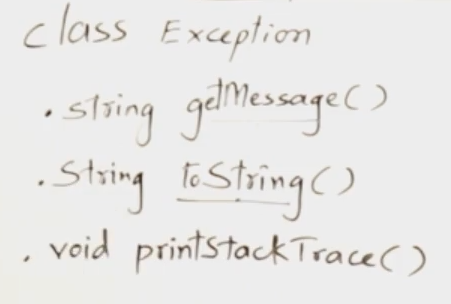 class Exception
. string getMessage()
. String toString()
. void printStackTrace()